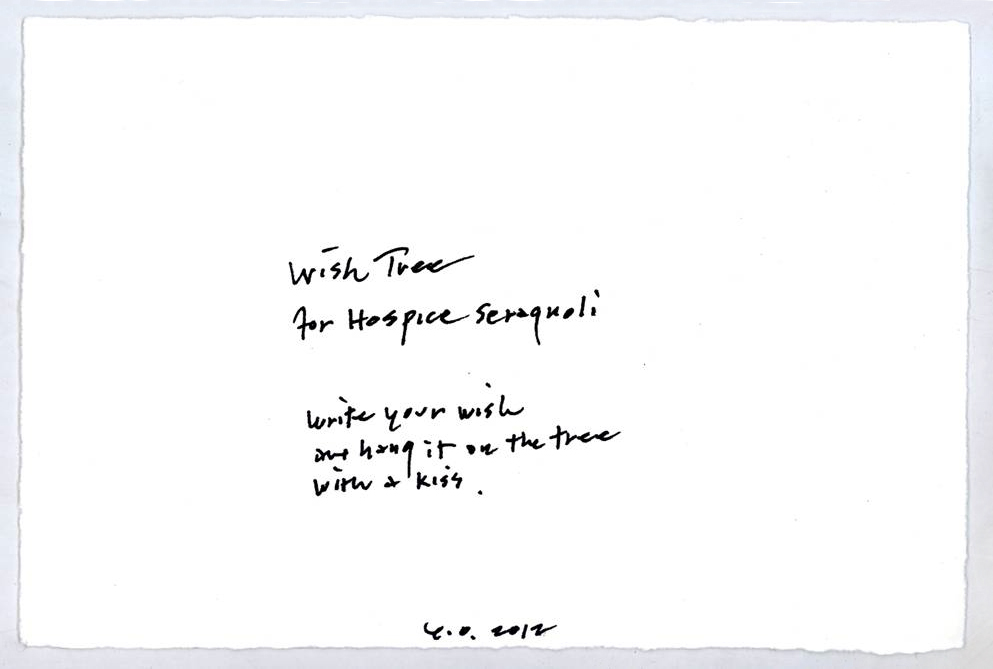 Wish Tree
for Hospice Seragnoli
write your wish
and hang it on the tree
with a kiss.
y.o. 2012